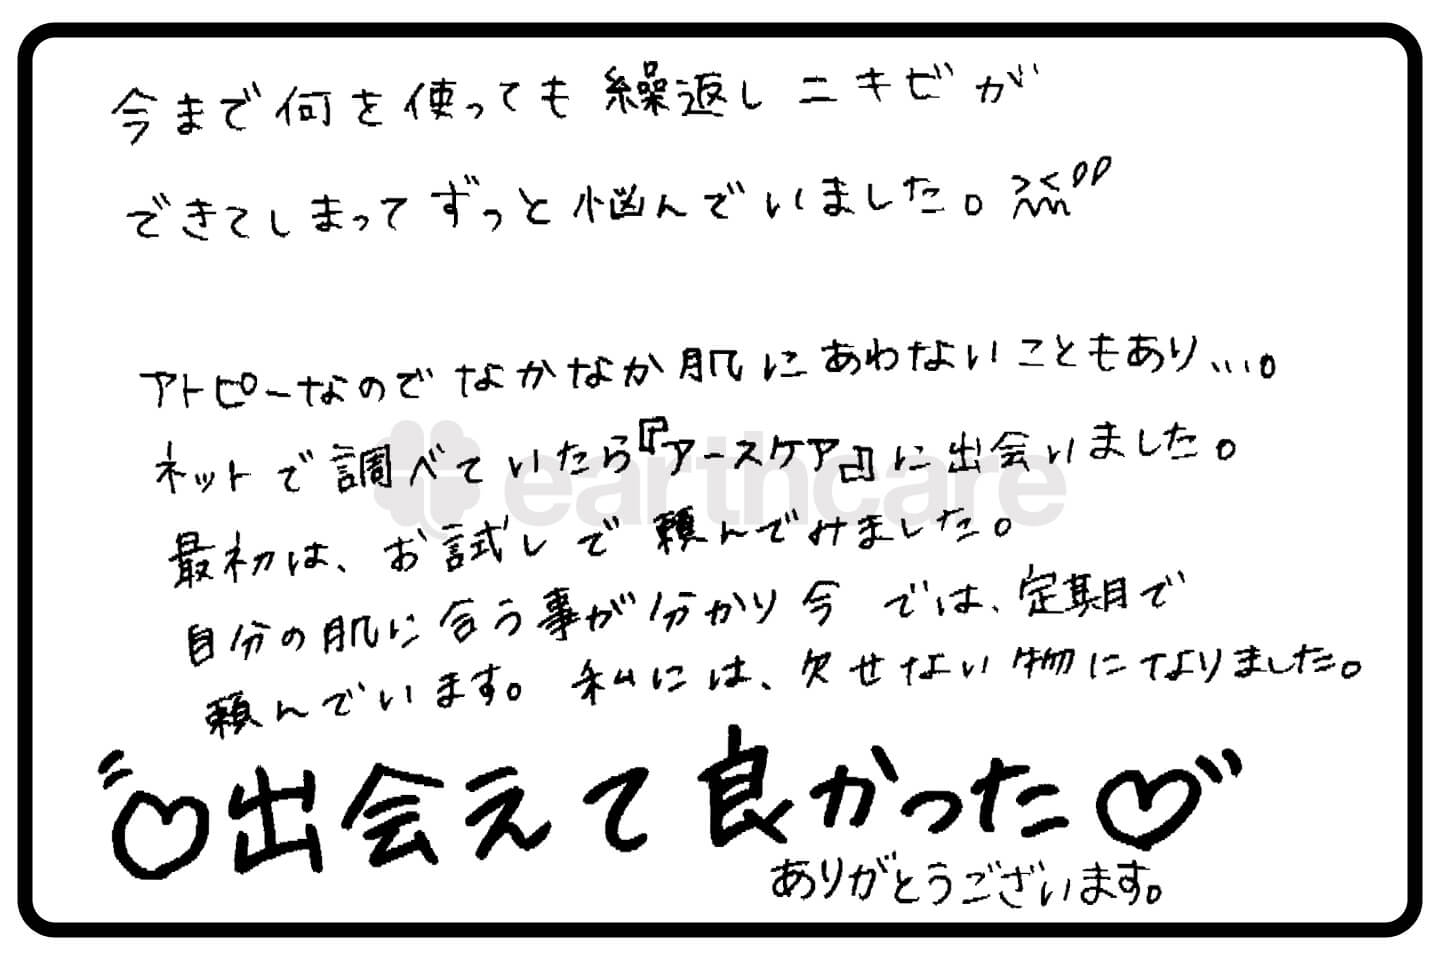 今まで何を使っても繰返しニキビが
できてしまってずっと悩んでいました。
アトピーなのでなかなか肌にあわないこともあり…。
ネットで調べていたら『アースケア』に出会いました。
earthcare
最初は、お試しで頼んでみました。
自分の肌に合う事が分かり今では、定期で
頼んでいます。私には、欠せない物になりました。
♡出会えて良かった♡
ありがとうございます。